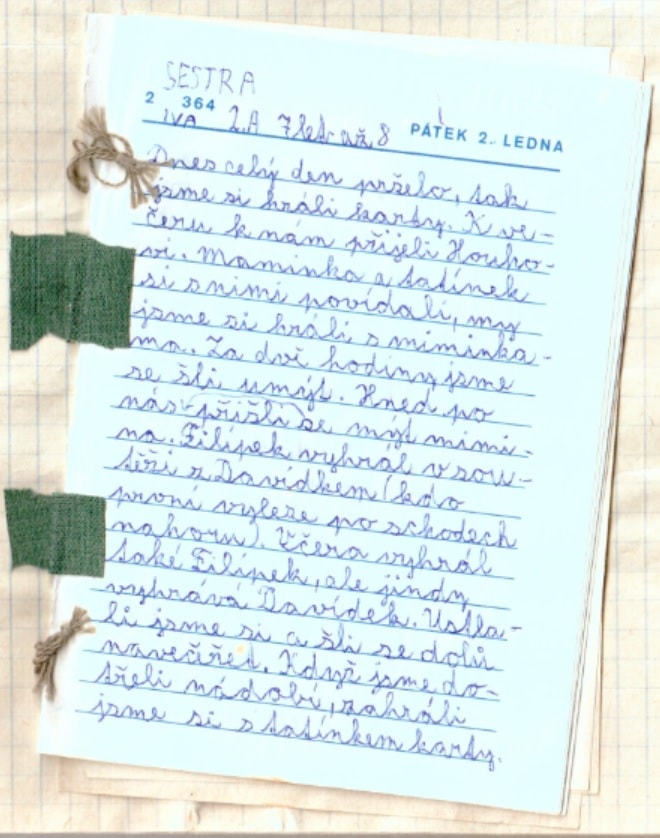 SESTRA
2 364
IVA 2.A 7 let až 8 PÁTEK 2. LEDNA
Dnes celý den pršelo, tak
jsme si hráli karty. K ve-
čeru k nám přijeli Houho-
vi. Maminka a tatínek
si s nimi povídali, my
jsme si hráli s miminka-
ma. Za dvě hodiny jsme
se šli umýt. Hned po
nás přišli se mýt mimi-
na. Filípek vyhrál v sou-
těži z Davídkem (kdo
první vyleze po schodech
nahoru). Včera vyhrál
také Filípek, ale jindy
vyhrává Davídek. Ustla-
li jsme si a šli se dolů
navečeřet. Když jsme do-
třeli nádobí, zahráli
jsme si s tatínkem karty.